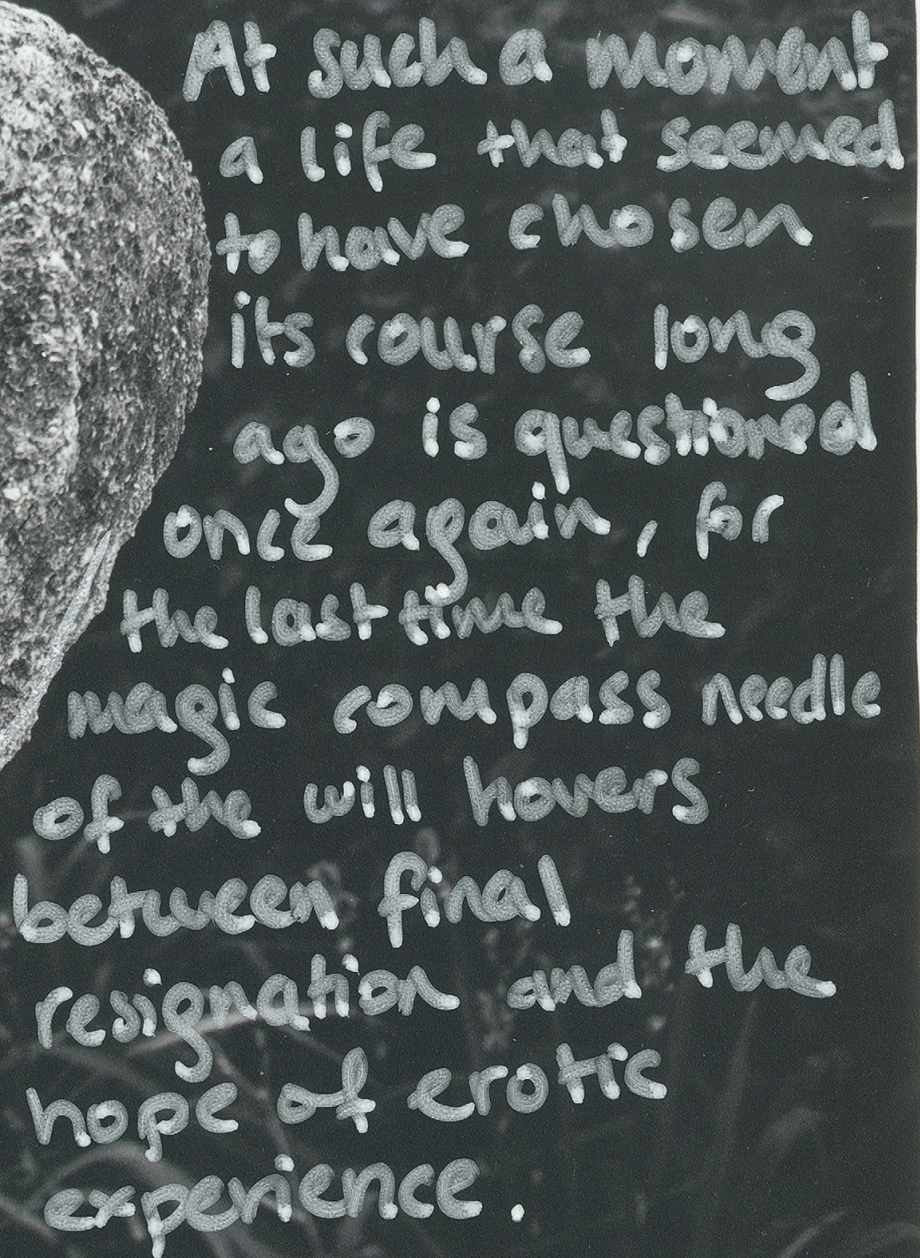 At such a moment
a life that seemed
to have chosen
its course long
ago is questioned
once again, for
the last time the
magic compass needle
of the will hovers
between final
resignation and the
hope of erotic
experience.